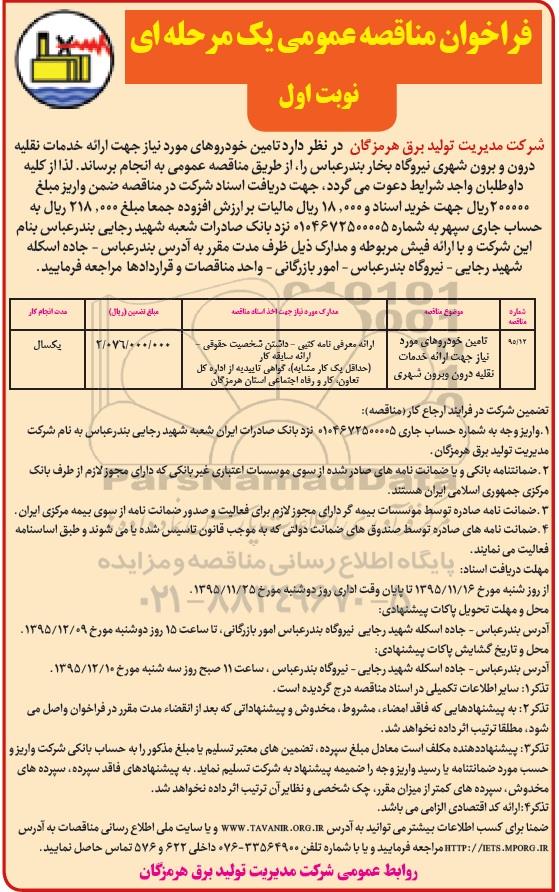 فراخوان مناقصه عمومی یک مرحله ای
نوبت اول
شرکت مدیریت تولید برق هرمزگان در نظر دارد تامین خودروهای مورد نیاز جهت ارائه خدمات نقلیه
درون و برون شهری نیروگاه بخار بندرعباس را، از طریق مناقصه عمومی به انجام برساند. لذا از کلیه
داوطلبان واجد شرایط دعوت می گردد، جهت دریافت اسناد شرکت در مناقصه ضمن واریز مبلغ
۲۰۰۰۰۰ ریال جهت خرید اسناد و ۱۸,۰۰۰ ریال مالیات بر ارزش افزوده جمعا مبلغ ۲۱۸,۰۰۰ ریال به
حساب جاری سپهر به شماره ۰۱۰۴۶۷۲۵۰۰۰۰۵ نزد بانک صادرات شعبه شهید رجایی بندرعباس بنام
این شرکت و با ارائه فیش مربوطه و مدارک ذیل ظرف مدت مقرر به آدرس بندرعباس - جاده اسکله
شهید رجایی - نیروگاه بندرعباس - امور بازرگانی - واحد مناقصات و قراردادها مراجعه فرمایید.
شماره مناقصه
موضوع مناقصه
مدارک مورد نیاز جهت اخذ اسناد مناقصه
مبلغ تضمین (ریال)
مدت انجام کار
۹۵/۱۲
تامین خودروهای مورد
نیاز جهت ارائه خدمات
نقلیه درون وبرون شهری
ارائه معرفی نامه کتبی - داشتن شخصیت حقوقی -
ارائه سابقه کار
(حداقل یک کار مشابه)، گواهی تاییدیه از اداره کل
تعاون، کار و رفاه اجتماعی استان هرمزگان
۲/۰۷۶/۰۰۰/۰۰۰
یکسال
تضمین شرکت در فرایند ارجاع کار (مناقصه):
۱.واریز وجه به شماره حساب جاری ۰۱۰۴۶۷۲۵۰۰۰۰۵ نزد بانک صادرات ایران شعبه شهید رجایی بندرعباس به نام شرکت
مدیریت تولید برق هرمزگان.
۲.ضمانتنامه بانکی و یا ضمانت نامه های صادر شده از سوی موسسات اعتباری غیر بانکی که دارای مجوز لازم از طرف بانک
مرکزی جمهوری اسلامی ایران هستند.
۳.ضمانت نامه صادره توسط موسسات بیمه گر دارای مجوز لازم برای فعالیت و صدور ضمانت نامه از سوی بیمه مرکزی ایران.
۴.ضمانت نامه های صادره توسط صندوق های ضمانت دولتی که به موجب قانون تاسیس شده یا می شوند و طبق اساسنامه
فعالیت می نمایند.
مهلت دریافت اسناد:
از روز شنبه مورخ ۱۳۹۵/۱۱/۱۶ تا پایان وقت اداری روز دوشنبه مورخ ۱۳۹۵/۱۱/۲۵.
محل و مهلت تحویل پاکات پیشنهادی:
آدرس بندرعباس - جاده اسکله شهید رجایی نیروگاه بندرعباس امور بازرگانی، تا ساعت ۱۵ روز دوشنبه مورخ ۱۳۹۵/۱۲/۰۹.
محل و تاریخ گشایش پاکات پیشنهادی:
آدرس بندرعباس - جاده اسکله شهید رجایی - نیروگاه بندرعباس ، ساعت ۱۱ صبح روز سه شنبه مورخ ۱۳۹۵/۱۲/۱۰.
تذکر۱: سایر اطلاعات تکمیلی در اسناد مناقصه درج گردیده است.
تذکر۲: به پیشنهادهایی که فاقد امضاء، مشروط، مخدوش و پیشنهاداتی که بعد از انقضاء مدت مقرر در فراخوان واصل می
شود، مطلقا ترتیب اثر داده نخواهد شد.
تذکر۳: پیشنهاددهنده مکلف است معادل مبلغ سپرده، تضمین های معتبر تسلیم یا مبلغ مذکور را به حساب بانکی شرکت واریز و
حسب مورد ضمانتنامه یا رسید واریز وجه را ضمیمه پیشنهاد به شرکت تسلیم نماید. به پیشنهادهای فاقد سپرده، سپرده های
مخدوش، سپرده های کمتر از میزان مقرر، چک شخصی و نظایر آن ترتیب اثر داده نخواهد شد.
تذکر۴: ارائه کد اقتصادی الزامی می باشد.
ضمنا برای کسب اطلاعات بیشتر می توانید به آدرس WWW.TAVANIR.ORG.IR و یا سایت ملی اطلاع رسانی مناقصات به آدرس
HTTP://IETS.MPORG.IR مراجعه فرمایید و یا با شماره تلفن ۳۳۵۶۴۹۰۰-۰۷۶ داخلی ۶۲۲ و ۵۷۶ تماس حاصل نمایید.
روابط عمومی شرکت مدیریت تولید برق هرمزگان
ParsNamadData
پایگاه اطلاع رسانی مناقصه و مزایده
۰۲۱-۸۸۳۴۹۶۷۰-۸